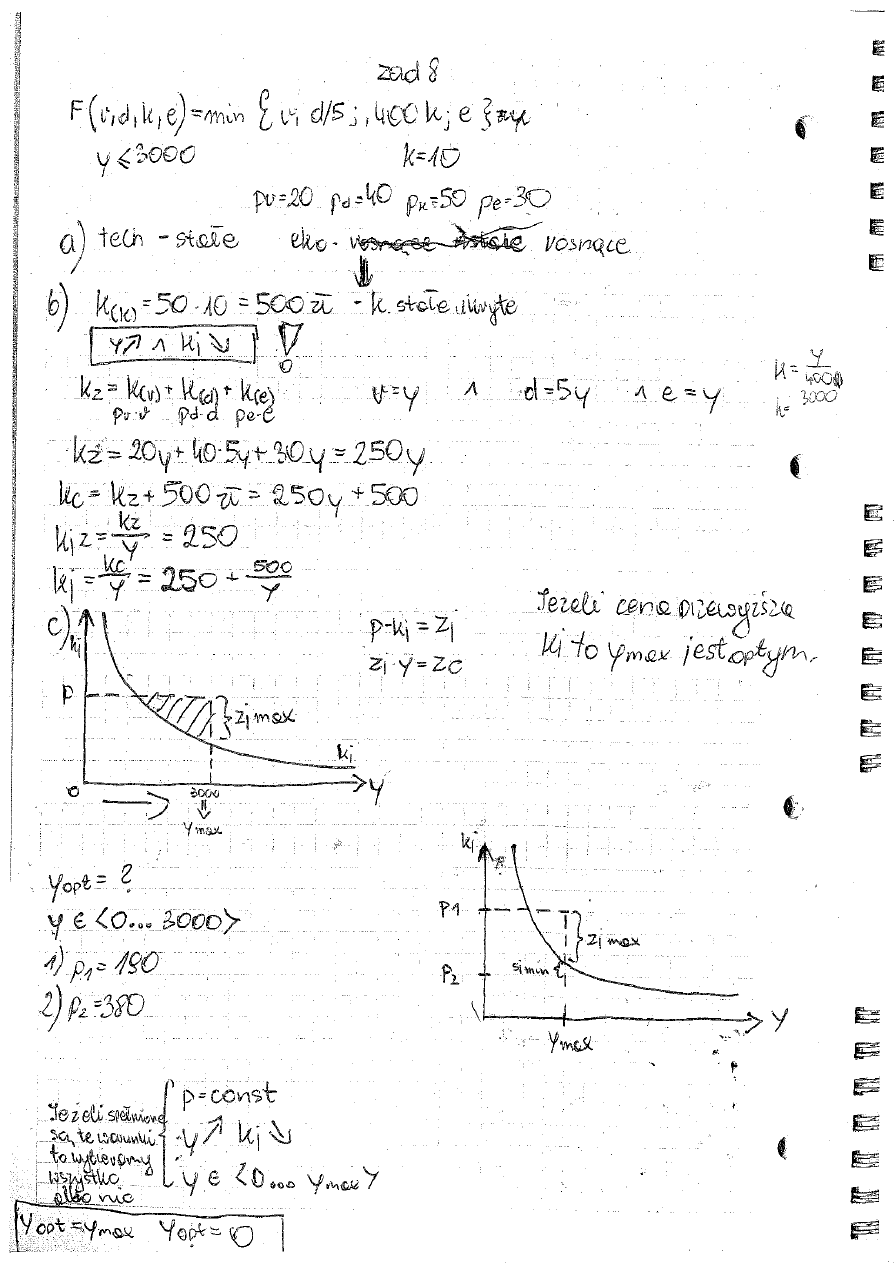 zad 8
F(v,d,k,e)=min { v; d/5; 400k; e }
y ≤ 3000 k=10
pv=20 pd=40 pk=50 pe=30
a) tech - stałe eko - rosnące
b) K(k) = 50·10 = 500 zł - k. stałe ukryte
y↗ ∧ kj ↘ !
kz = K(v) + K(d) + K(e) v=y ∧ d=5y ∧ e=y
pv·v pd·d pe·e
k = y/400
k= 3000
kz = 20y + 40·5y + 30y = 250y
kc = kz + 500 zł = 250y + 500
kjz = kz/y = 250
kj = kc/y = 250 + 500/y
c) kj
p-kj = zj
zj·y = zc
Jeżeli cena przewyższa
kj to ymax jest optym.
p
zj max
kj
0
3000
y
ymax
yopt = ?
y ∈ <0... 3000>
1) p1 = 190
2) p2 = 380
kj
p1
zj max
sj min
p2
y
ymax
Jeżeli spełnione
są te warunki
to wybieramy
wszystko
albo nic
p=const
y ↗ kj ↘
y ∈ <0... ymax>
yopt = ymax yopt = 0